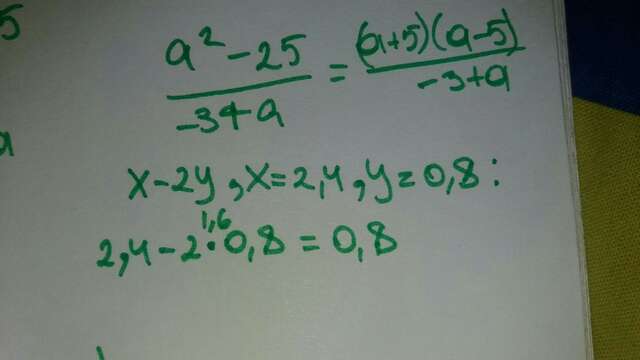 5
a² - 25 / -3+a = (a+5)(a-5) / -3+a
a
x-2y, x=2,4, y=0,8:
1,6
2,4-2·0,8=0,8